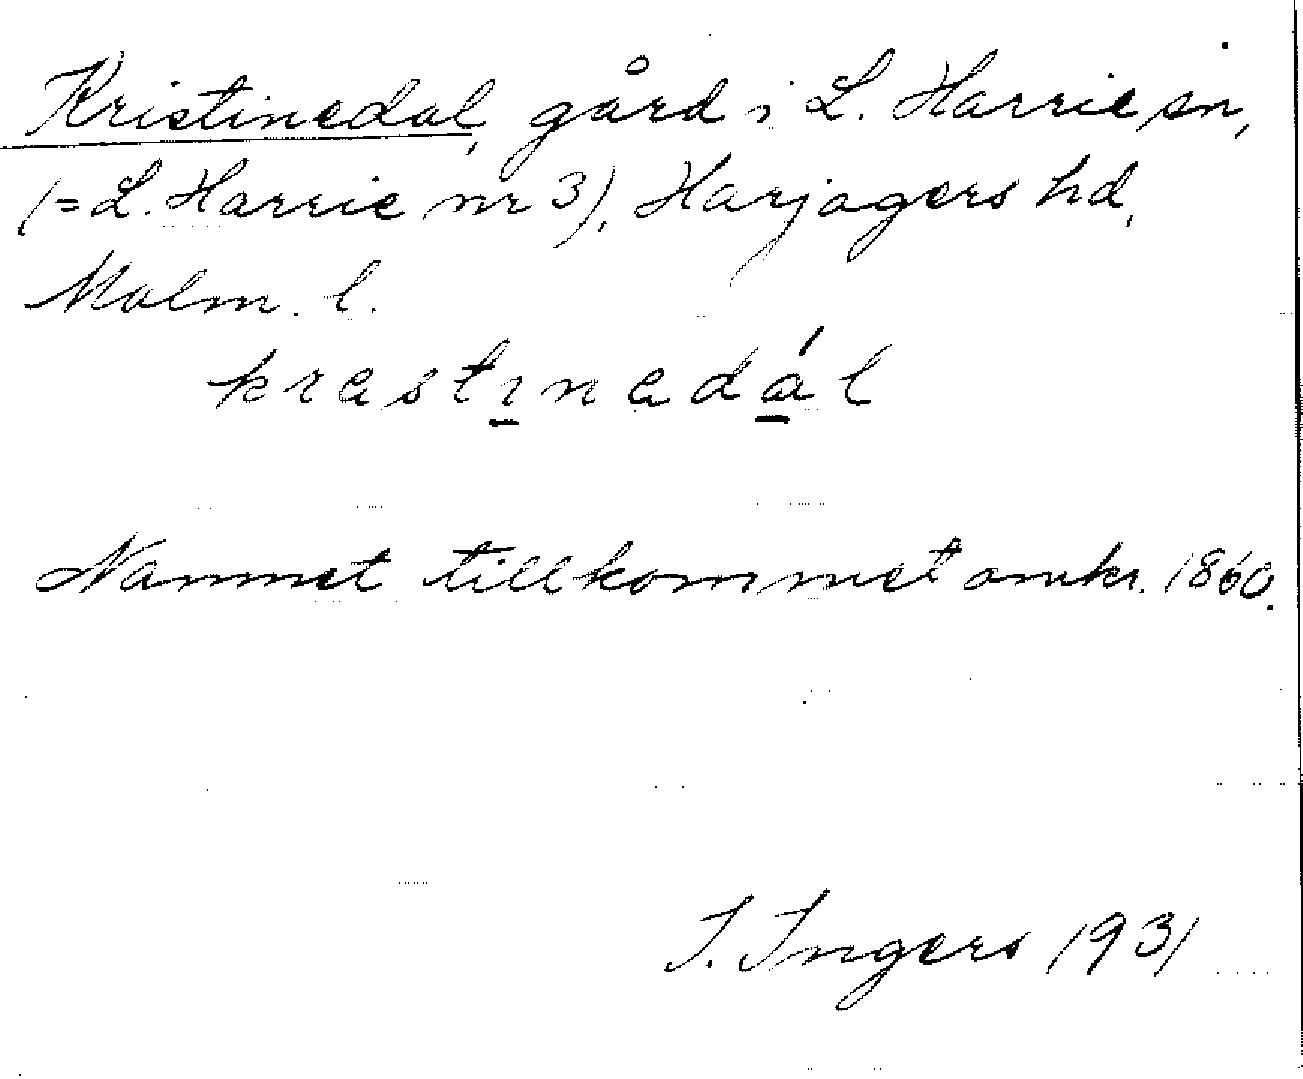 Kristinedal, gård i L. Harrie sn,
(= L. Harrie nr 3), Harjagers hd,
Malm. l.
krestınedál
Namnet tillkommet omkr. 1860.
I. Ingers 1931